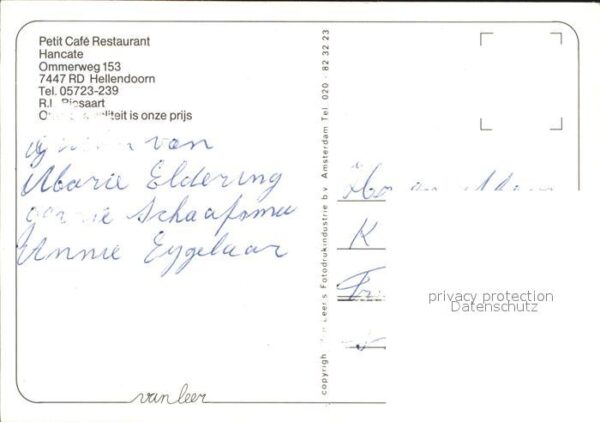 Petit Café Restaurant
Hancate
Ommerweg 153
7447 RD Hellendoorn
Tel. 05723-239
R.I.
is onze prijs
van
Marie Eldering
Schaafsma
Annie Eygelaar
copyright Van Leer's Fotodrukindustrie b.v. Amsterdam Tel. 020 - 82 32 23
K
privacy protection
Datenschutz
van leer